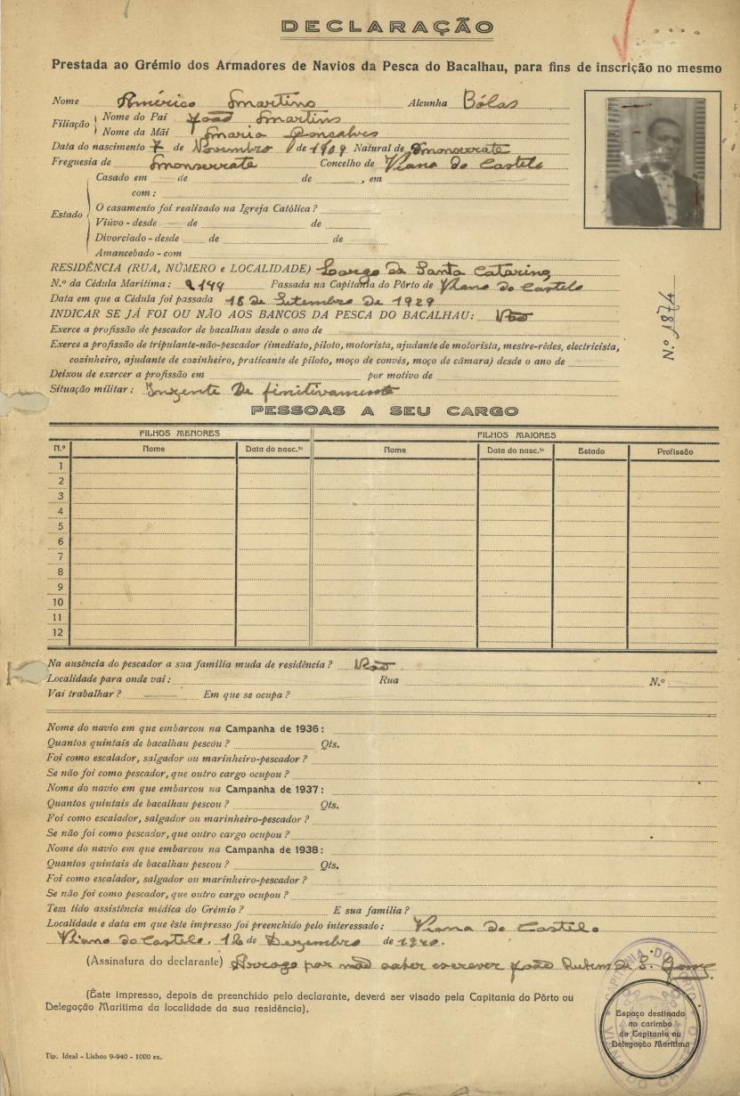 DECLARAÇÃO
Prestada ao Grémio dos Armadores de Navios da Pesca do Bacalhau, para fins de inscrição no mesmo
Nome Américo Martins Alcunha Bólas
Filiação Nome do Pai João Martins
Nome da Mãi Maria Gonçalves
Data do nascimento 7 de Novembro de 1909 Natural de Monserrate
Freguesia de Monserrate Concelho de Viana do Castelo
Casado em de de , em
com :
Estado O casamento foi realizado na Igreja Católica ?
Viúvo - desde de de
Divorciado - desde de de
Amancebado - com
RESIDÊNCIA (RUA, NÚMERO e LOCALIDADE) Largo de Santa Catarina
N.º da Cédula Marítima : 2144 Passada na Capitania do Pôrto de Viana do Castelo
Data em que a Cédula foi passada 18 de Setembro de 1929
INDICAR SE JÁ FOI OU NÃO AOS BANCOS DA PESCA DO BACALHAU : Não
Exerce a profissão de pescador de bacalhau desde o ano de
Exerce a profissão de tripulante-não-pescador (imediato, piloto, motorista, ajudante de motorista, mestre-rêdes, electricista,
cozinheiro, ajudante de cozinheiro, praticante de piloto, moço de convés, moço de câmara) desde o ano de
Deixou de exercer a profissão em por motivo de
Situação militar : Inzente De finitivamente
N.º 1874
PESSOAS A SEU CARGO
FILHOS MENORES FILHOS MAIORES
N.º Nome Data do nasc.to Nome Data do nasc.to Estado Profissão
1
2
3
4
5
6
7
8
9
10
11
12
Na ausência do pescador a sua família muda de residência ? Não
Localidade para onde vai : Rua N.º
Vai trabalhar ? Em que se ocupa ?
Nome do navio em que embarcou na Campanha de 1936 :
Quantos quintais de bacalhau pescou ? Qts.
Foi como escalador, salgador ou marinheiro-pescador ?
Se não foi como pescador, que outro cargo ocupou ?
Nome do navio em que embarcou na Campanha de 1937 :
Quantos quintais de bacalhau pescou ? Qts.
Foi como escalador, salgador ou marinheiro-pescador ?
Se não foi como pescador, que outro cargo ocupou ?
Nome do navio em que embarcou na Campanha de 1938 :
Quantos quintais de bacalhau pescou ? Qts.
Foi como escalador, salgador ou marinheiro-pescador ?
Se não foi como pescador, que outro cargo ocupou ?
Tem tido assistência médica do Grémio ? E sua família ?
Localidade e data em que êste impresso foi preenchido pelo interessado : Viana do Castelo
Viana do Castelo, 12 de Dezembro de 1940.
(Assinatura do declarante) Arrogo por não saber escrever João
(Êste impresso, depois de preenchido pelo declarante, deverá ser visado pela Capitania do Pôrto ou
Delegação Marítima da localidade da sua residência).
CAPITANIA DO PORTO
VIANA DO CASTELO
Espaço destinado
ao carimbo
da Capitania ou
Delegação Marítima
Tip. Ideal - Lisboa 9-940 - 1000 ex.